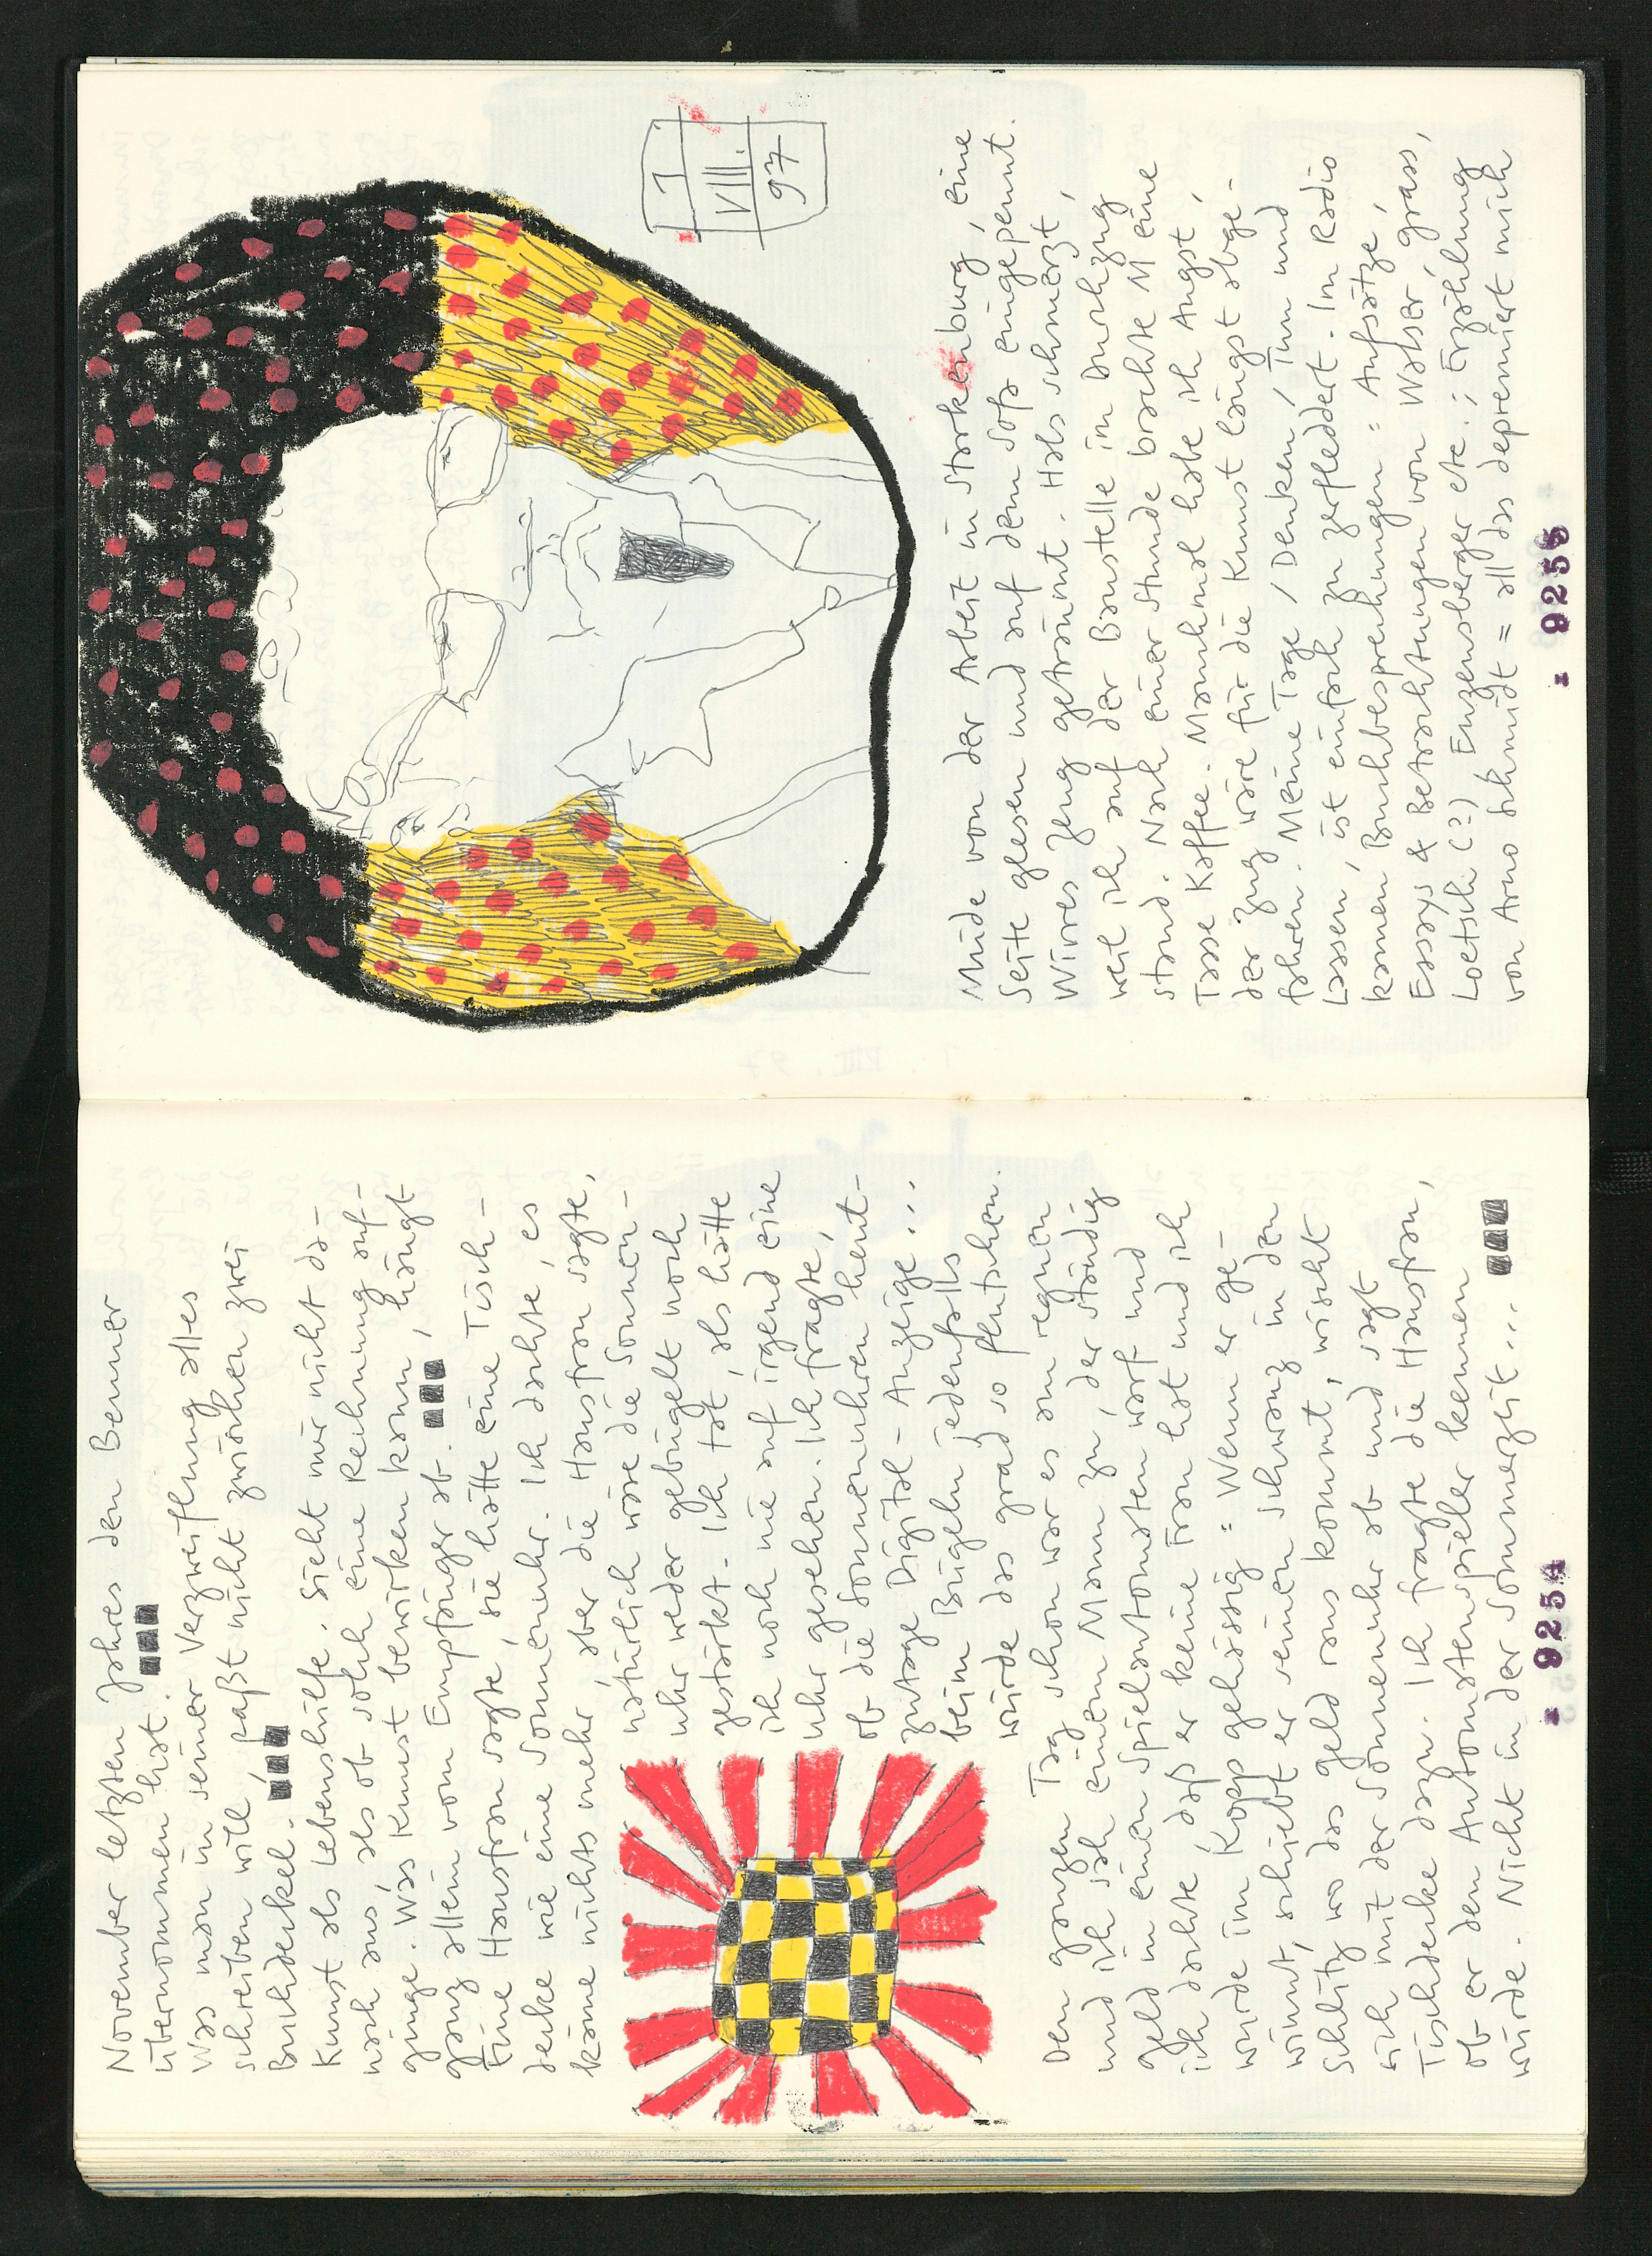 November letzten Jahres den Benner
übernommen hat.
Was man in seiner Verzweiflung alles
schreiben will, paßt nicht zwischen zwei
Buchdeckel.
Kunst als Lebenshilfe. Sieht mir nicht da-
nach aus, als ob solch eine Rechnung auf-
ginge. Was Kunst bewirken kann, hängt
ganz allein vom Empfänger ab.
Eine Hausfrau sagte, sie hätte eine Tisch-
decke wie eine Sonnenuhr. Ich dachte, es
käme nichts mehr, aber die Hausfrau sagte,
natürlich wäre die Sonnen-
uhr weder gebügelt noch
gestärkt. Ich tat, als hätte
ich noch nie auf irgend eine
Uhr gesehen. Ich fragte,
ob die Sonnenuhren heut-
zutage Digital-Anzeige...
beim Bügeln jedenfalls
würde das grad so flutschen.
Den ganzen Tag schon war es am regnen
und ich sah einem Mann zu, der ständig
Geld in einen Spielautomaten warf und
ich dachte, daß er keine Frau hat und ich
wurde im Kopp gehässig: Wenn er ge-
winnt, schiebt er seinen Schwanz in den
Schlitz wo das Geld raus kommt, wischt
sich mit der Sonnenuhr ab und sagt
Tischdecke dazu. Ich fragte die Hausfrau,
ob er den Automatenspieler kennen
würde. Nicht in der Sommerzeit...
- 9254
1
VIII.
97
Müde von der Arbeit in Starkenburg, eine
Seite glesen und auf dem Sofa eingepennt.
Wirres Zeug geträumt. Hals schmerzt,
weil ich auf der Baustelle in Durchzug
stand. Nach einer Stunde brachte M eine
Tasse Kaffee. Manchmal habe ich Angst,
der Zug wäre für die Kunst längst abge-
fahren. Meine Tage / Denken / Tun und
Lassen, ist einfach zu zerfleddert. Im Radio
kamen Buchbesprechungen: Aufsätze,
Essays & Betrachtungen von Walser, Grass,
Loetsch (?) Enzensberger etc.; Erzählung
von Arno Schmidt = all das deprimiert mich
- 9255